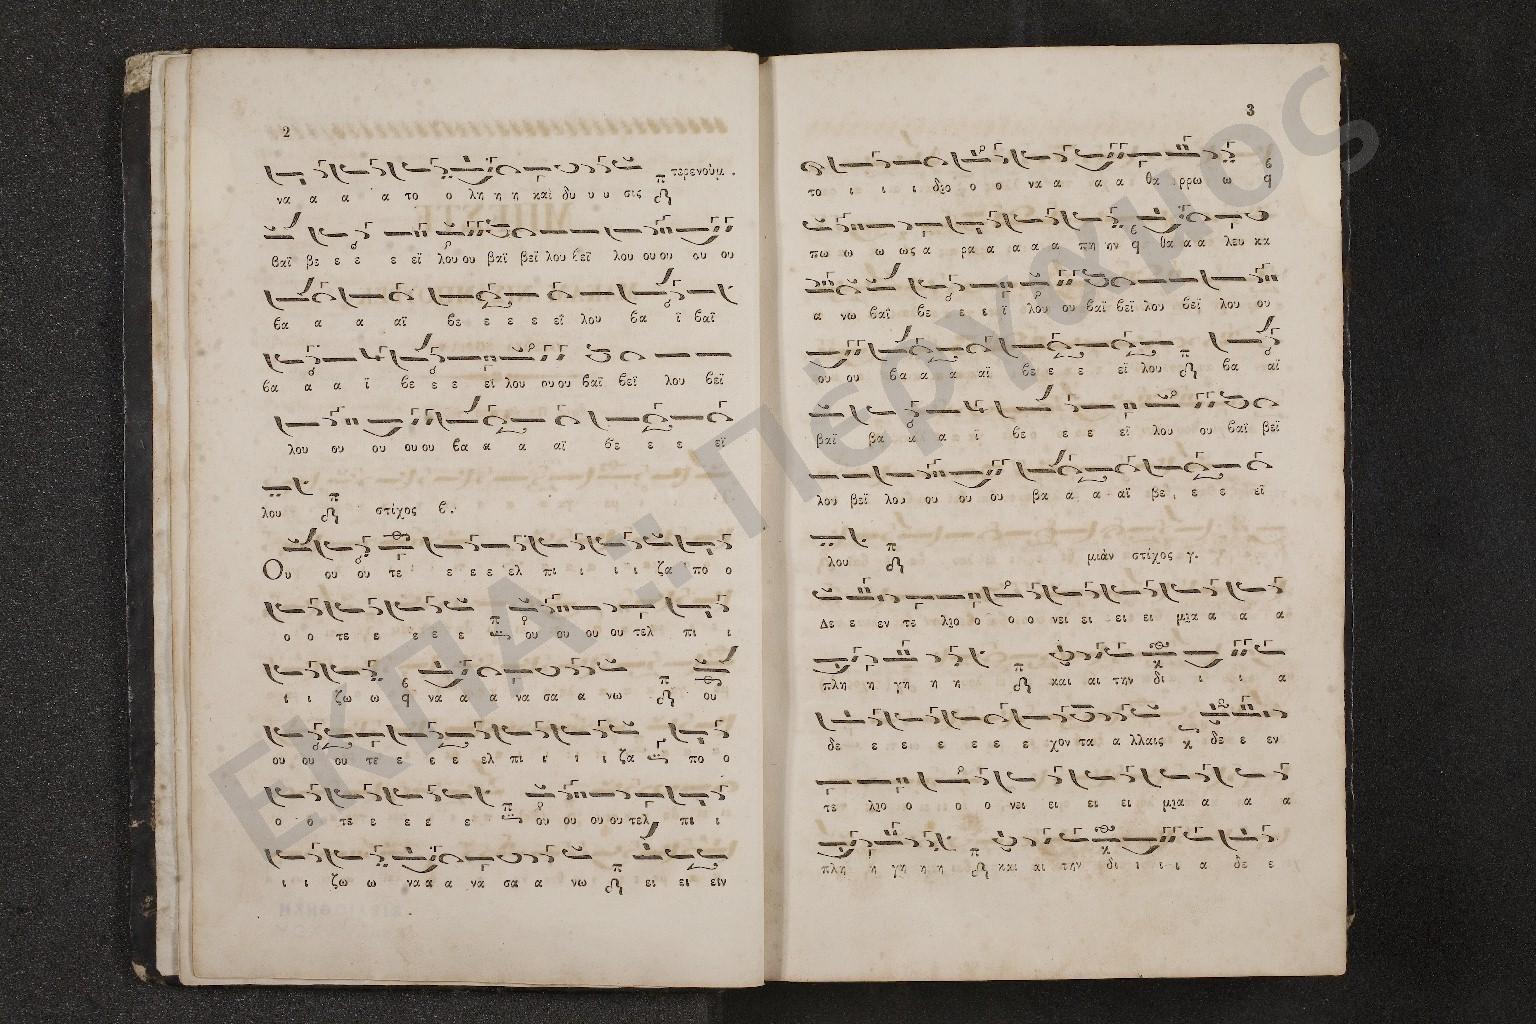 2
περενούμ .
να α α α το ο λη η η καὶ δυ υ υ σις
βαϊ βε ε ε ε ε εϊ λου ου βαϊ βεϊ λου βεϊ λου ου ου ου ου
βα α α αϊ βε ε ε ε ε εϊ λου βα ϊ βαϊ
βα α α ϊ βε ε ε εϊ λου ου ου βαϊ βεϊ λου βεϊ
λου ου ου ου ου βα α α α αϊ βε ε ε ε εϊ
λου στίχος β.
Ου ου ου τε ε ε ε ελ πι ι ι ι ζα πο ο
ο ο τε ε ε ε ε ου ου ου ου τελ πι ι
ι ι ζω ω να α α να σα α νω ου
ου ου ου τε ε ε ε ελ πι ι ι ι ζα πο ο
ο ο τε ε ε ε ε ου ου ου ου τελ πι ι
ι ι ζω ω να α α α να σα α νω ει ει ειν
3
το ι ι ι διο ο ο να α α α θα ρρω ω
πω ω ω ως α ρα α α α α πη ην θα α α λευ κα
α νω βαϊ βε ε ε ϊ λου ου βαϊ βεϊ λου βεϊ λου ου
ου ου βα α α α αϊ βε ε ε ε εϊ λου βα αϊ
βαϊ βα α α ϊ βε ε ε εϊ λου ου βαϊ βεϊ
λου βεϊ λου ου ου ου ου βα α α αϊ βε ε ε ε εϊ
λου μιὰν στίχος γ.
Δε ε εν τε λιο ο ο ο νει ει ει ει μια α α α
πλη η γη η η και αι την δι ι ι ι α
δε ε ε ε ε ε ε χον τα α λλαις δε ε εν
τε λιο ο ο ο νει ει ει ει μια α α α
πλη η γη η η και αι την δι ι ι ι α δε ε
ΕΚΠΑ:: Πέργαμος